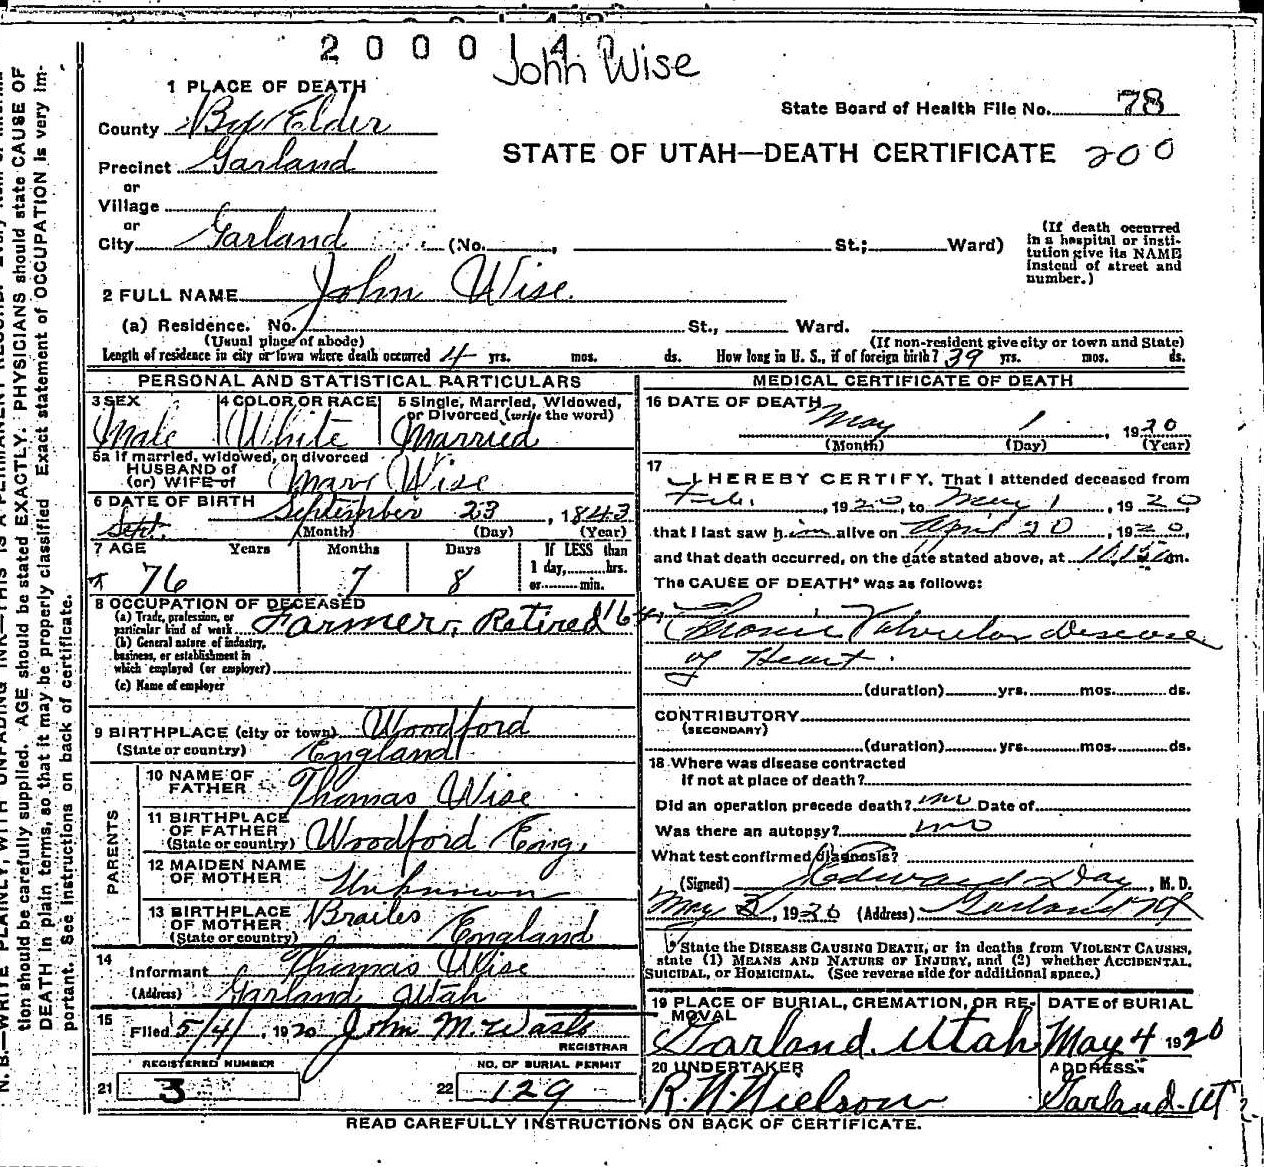 2 0 0 0 1 4 0
John Wise
1 PLACE OF DEATH
State Board of Health File No. 78
County Box Elder
STATE OF UTAH—DEATH CERTIFICATE 200
Precinct Garland
or
Village
or
City Garland (No. , St.; Ward)
(If death occurred in a hospital or insti-
tution give its NAME
instead of street and
number.)
2 FULL NAME John Wise.
(a) Residence. No. St., Ward.
(Usual place of abode) (If non-resident give city or town and State)
Length of residence in city or town where death occurred 4 yrs. mos. ds. How long in U. S., if of foreign birth? 39 yrs. mos. ds.
PERSONAL AND STATISTICAL PARTICULARS
3 SEX Male
4 COLOR OR RACE White
5 Single, Married, Widowed,
or Divorced (write the word)
Married
5a If married, widowed, or divorced
HUSBAND of
(or) WIFE of Mary Wise
6 DATE OF BIRTH September 23, 1843
Sept. (Month) (Day) (Year)
7 AGE Years Months Days If LESS than
1 day, hrs.
or min.
76 7 8
8 OCCUPATION OF DECEASED
(a) Trade, profession, or
particular kind of work Farmer, Retired
(b) General nature of industry,
business, or establishment in
which employed (or employer)
(c) Name of employer
9 BIRTHPLACE (city or town) Woodford
(State or country) England
PARENTS
10 NAME OF
FATHER Thomas Wise
11 BIRTHPLACE
OF FATHER
(State or country) Woodford Eng.
12 MAIDEN NAME
OF MOTHER Unknown
13 BIRTHPLACE
OF MOTHER
(State or country) Brailes England
14
Informant Thomas Wise
(Address) Garland Utah
15
Filed 5/4/, 1920 John M.
REGISTRAR
REGISTERED NUMBER NO. OF BURIAL PERMIT
21 3 22 129
MEDICAL CERTIFICATE OF DEATH
16 DATE OF DEATH
May 1, 1920
(Month) (Day) (Year)
17
I HEREBY CERTIFY, That I attended deceased from
Feb. , 1920, to May 1, 1920
that I last saw him alive on April 20, 1920,
and that death occurred, on the date stated above, at m.
The CAUSE OF DEATH* was as follows:
Chronic Valvular disease
of Heart.
(duration) yrs. mos. ds.
CONTRIBUTORY
(SECONDARY)
(duration) yrs. mos. ds.
18 Where was disease contracted
if not at place of death?
Did an operation precede death? no Date of
Was there an autopsy? no
What test confirmed diagnosis?
(Signed) Edward Day, M. D.
May 3, 1920 (Address) Garland Ut
*State the DISEASE CAUSING DEATH, or in deaths from VIOLENT CAUSES,
state (1) MEANS AND NATURE OF INJURY, and (2) whether ACCIDENTAL,
SUICIDAL, or HOMICIDAL. (See reverse side for additional space.)
19 PLACE OF BURIAL, CREMATION, OR RE-
MOVAL
Garland. Utah
DATE OF BURIAL
May 4 1920
20 UNDERTAKER
R. N. Nielson
ADDRESS
Garland. Ut
READ CAREFULLY INSTRUCTIONS ON BACK OF CERTIFICATE.
N. B.—WRITE PLAINLY, WITH UNFADING INK—THIS IS A PERMANENT RECORD.
tion should be carefully supplied. AGE should be stated EXACTLY. PHYSICIANS should state CAUSE OF
DEATH in plain terms, so that it may be properly classified. Exact statement of OCCUPATION is very im-
portant. See instructions on back of certificate.